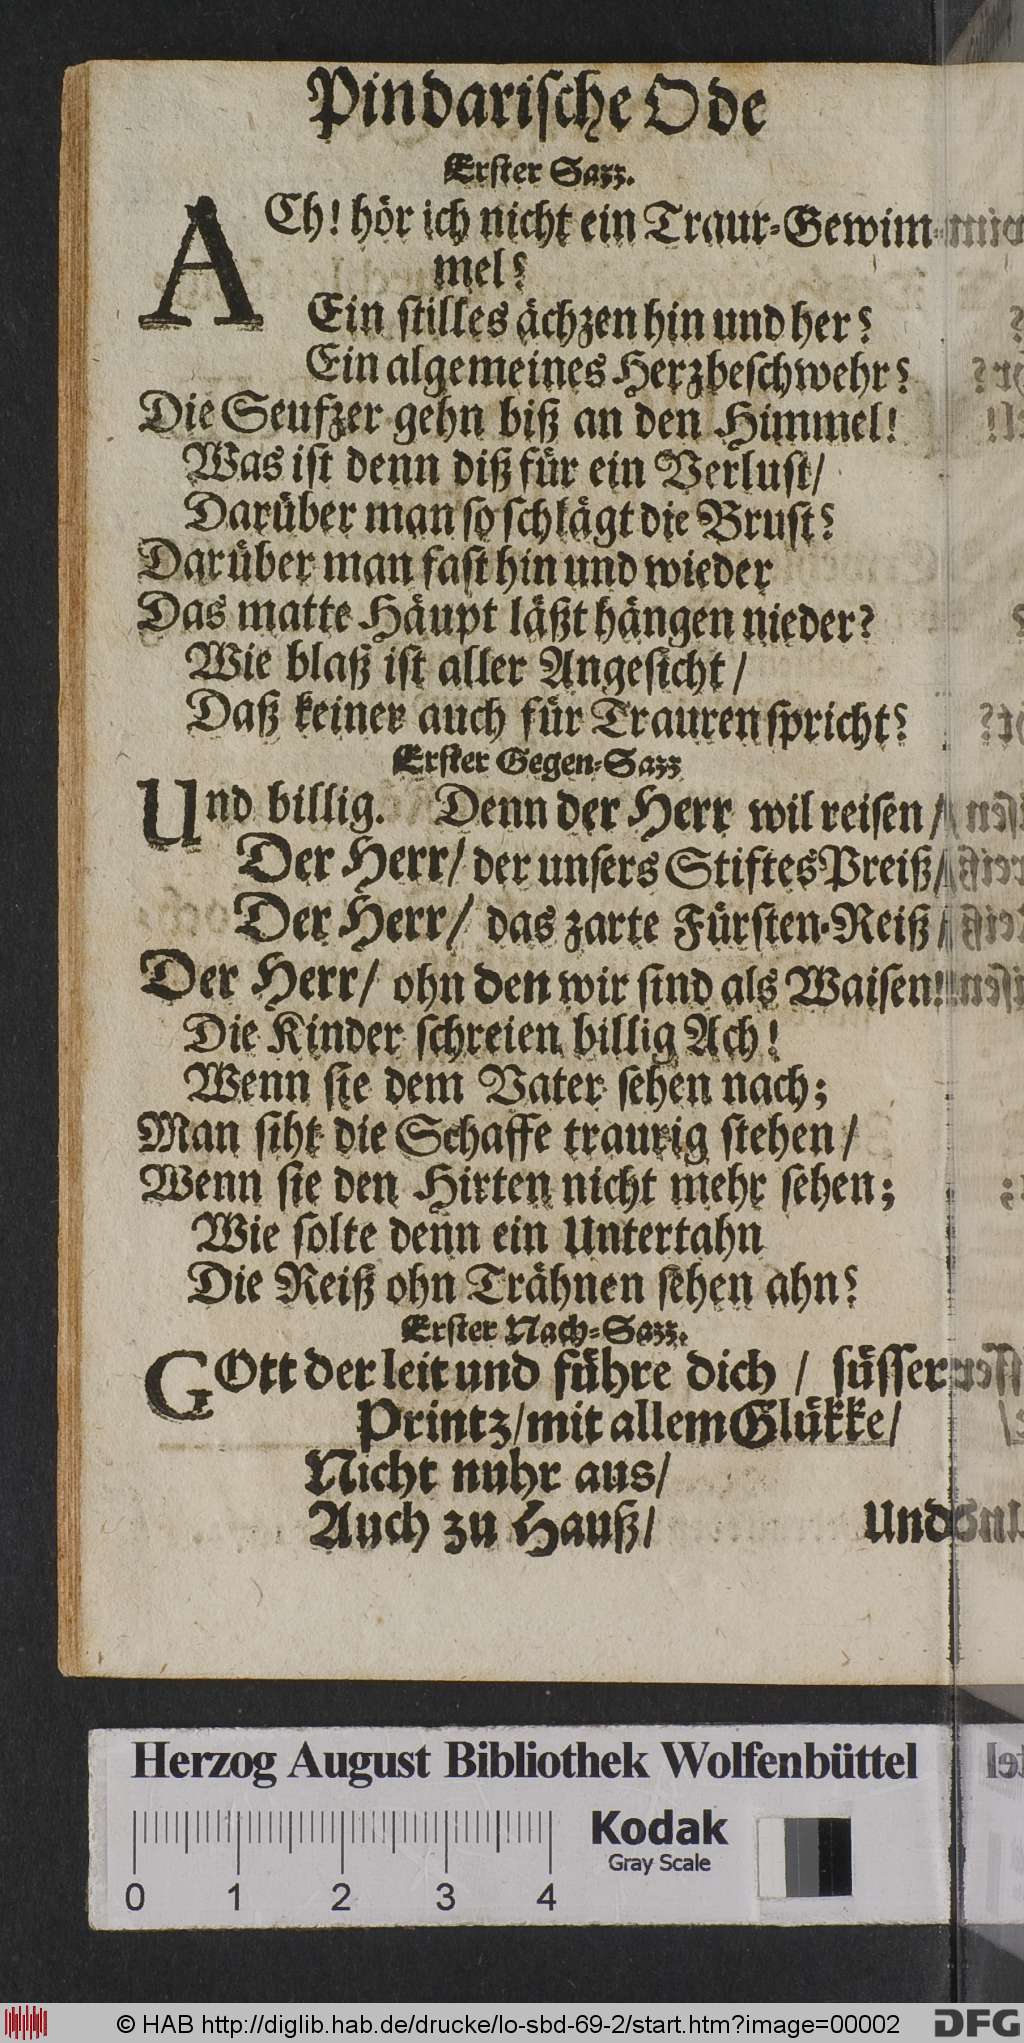 Pindarische Ode
Erster Sazz.
ACh! hör ich nicht ein Traur-Gewim-
mel?
Ein stilles ächzen hin und her?
Ein algemeines Herzbeschwehr?
Die Seufzer gehn biß an den Himmel!
Was ist denn diß für ein Verlust/
Darüber man so schlägt die Brust?
Darüber man fast hin und wieder
Das matte Häupt läßt hängen nieder?
Wie blaß ist aller Angesicht/
Daß keiner auch für Trauren spricht?
Erster Gegen-Sazz
Und billig. Denn der Herr wil reisen/
Der Herr/ der unsers Stiftes Preiß/
Der Herr/ das zarte Fürsten-Reiß/
Der Herr/ ohn den wir sind als Waisen!
Die Kinder schreien billig Ach!
Wenn sie dem Vater sehen nach;
Man siht die Schaffe traurig stehen/
Wenn sie den Hirten nicht mehr sehen;
Wie solte denn ein Untertahn
Die Reiß ohn Trähnen sehen ahn?
Erster Nach-Sazz.
GOtt der leit und führe dich / süsser
Printz/mit allem Glükke/
Nicht nuhr aus/
Auch zu Hauß/
Und
Herzog August Bibliothek Wolfenbüttel
Kodak
Gray Scale
0 1 2 3 4
© HAB http://diglib.hab.de/drucke/lo-sbd-69-2/start.htm?image=00002
DFG